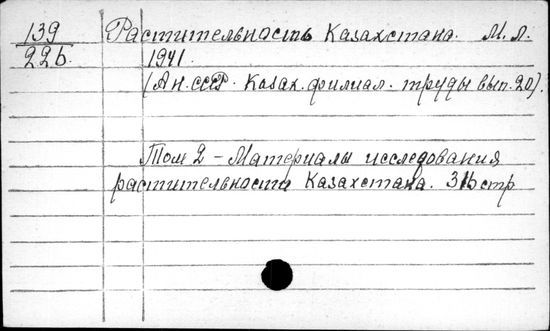 139 Растительность Казахстана. М.Л.
22б. 1941.
(Ан.СССР. Казах.филиал. труды вып.20).
Том 2 – Материалы исследования
растительности Казахстана. 316 стр